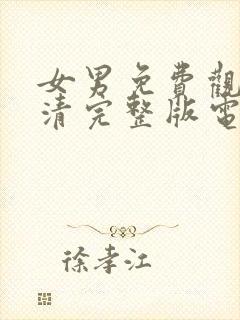 女男免費觀
清完整版電
徐孝江